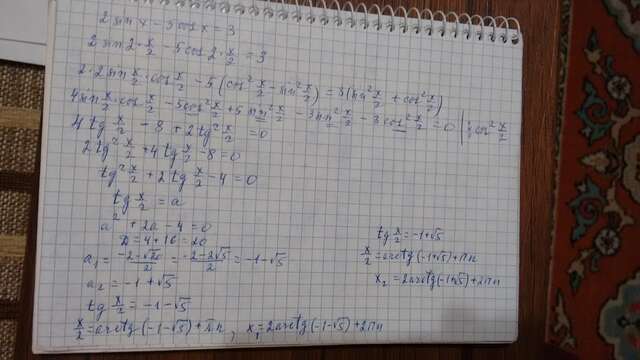 2 sin x - 5 cos x = 3
2 sin 2·x/2 - 5 cos 2·x/2 = 3
2·2 sin x/2 · cos x/2 - 5 (cos² x/2 - sin² x/2) = 3 (sin² x/2 + cos² x/2)
4 sin x/2 · cos x/2 - 5 cos² x/2 + 5 sin² x/2 - 3 sin² x/2 - 3 cos² x/2 = 0 | : cos² x/2
4 tg x/2 - 8 + 2 tg² x/2 = 0
2 tg² x/2 + 4 tg x/2 - 8 = 0
tg² x/2 + 2 tg x/2 - 4 = 0
tg x/2 = a
a² + 2a - 4 = 0
D = 4 + 16 = 20
a₁ = (-2 - √20)/2 = (-2 - 2√5)/2 = -1 - √5
a₂ = -1 + √5
tg x/2 = -1 - √5
x/2 = arctg (-1 - √5) + πn, x₁ = 2arctg (-1 - √5) + 2πn
tg x/2 = -1 + √5
x/2 = arctg (-1 + √5) + πn
x₂ = 2arctg (-1 + √5) + 2πn